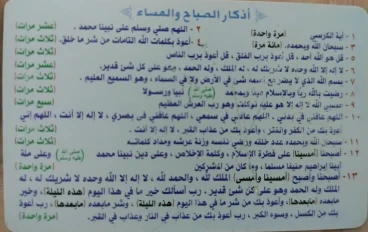 أذكار الصباح والمساء
١ - آية الكرسي (مرة واحدة) ٢ - اللهم صلي وسلم على نبينا محمد . (عشر مرات)
٣ - سبحان الله وبحمده. (مائة مرة) ٤ - أعوذ بكلمات الله التامات من شر ما خلق. (ثلاث مرات)
٥ - قل هو الله أحد ، قل أعوذ برب الفلق ، قل أعوذ برب الناس (ثلاث مرات)
٦ - لا إله إلا الله وحده لا شريك له ، له الملك ، وله الحمد ، وهو على كل شيء قدير. (عشر مرات)
٧ - بسم الله الذي لا يضر مع اسمه شيء في الأرض ولا في السماء ، وهو السميع العليم . (ثلاث مرات)
٨ - رضيت بالله رباً وبالإسلام ديناً وبمحمد نبياً ورسولاً (ثلاث مرات)
٩ - حسبي الله لا إله إلا هو عليه توكلت وهو رب العرش العظيم (سبع مرات)
١٠ - اللهم عافني في بدني ، اللهم عافني في سمعي ، اللهم عافني في بصري ، لا إله إلا أنت ، اللهم إني
أعوذ بك من الكفر والفقر ، وأعوذ بك من عذاب القبر ، لا إله إلا أنت . (ثلاث مرات)
١١ - سبحان الله وبحمده عدد خلقه ورضى نفسه وزنة عرشه ومداد كلماته (ثلاث مرات)
١٢ - أصبحنا (أمسينا) على فطرة الإسلام ، وكلمة الإخلاص ، وعلى دين نبينا محمد وعلى ملة
أبينا إبراهيم حنيفاً مسلماً ، وما كان من المشركين
١٣ - أصبحنا وأصبح (أمسينا وأمسى) الملك لله ، والحمد لله ، لا إله إلا الله وحده لا شريك له ، له
الملك وله الحمد وهو على كل شيء قدير ، رب أسألك خير ما في هذا اليوم (هذه الليلة) ، وخير
ما بعده (ما بعدها) ، وأعوذ بك من شر ما في هذا اليوم (هذه الليلة) وشر ما بعده (ما بعدها) ، رب أعوذ
بك من الكسل ، وسوء الكبر ، رب أعوذ بك من عذاب في النار وعذاب في القبر. (مرة واحدة)